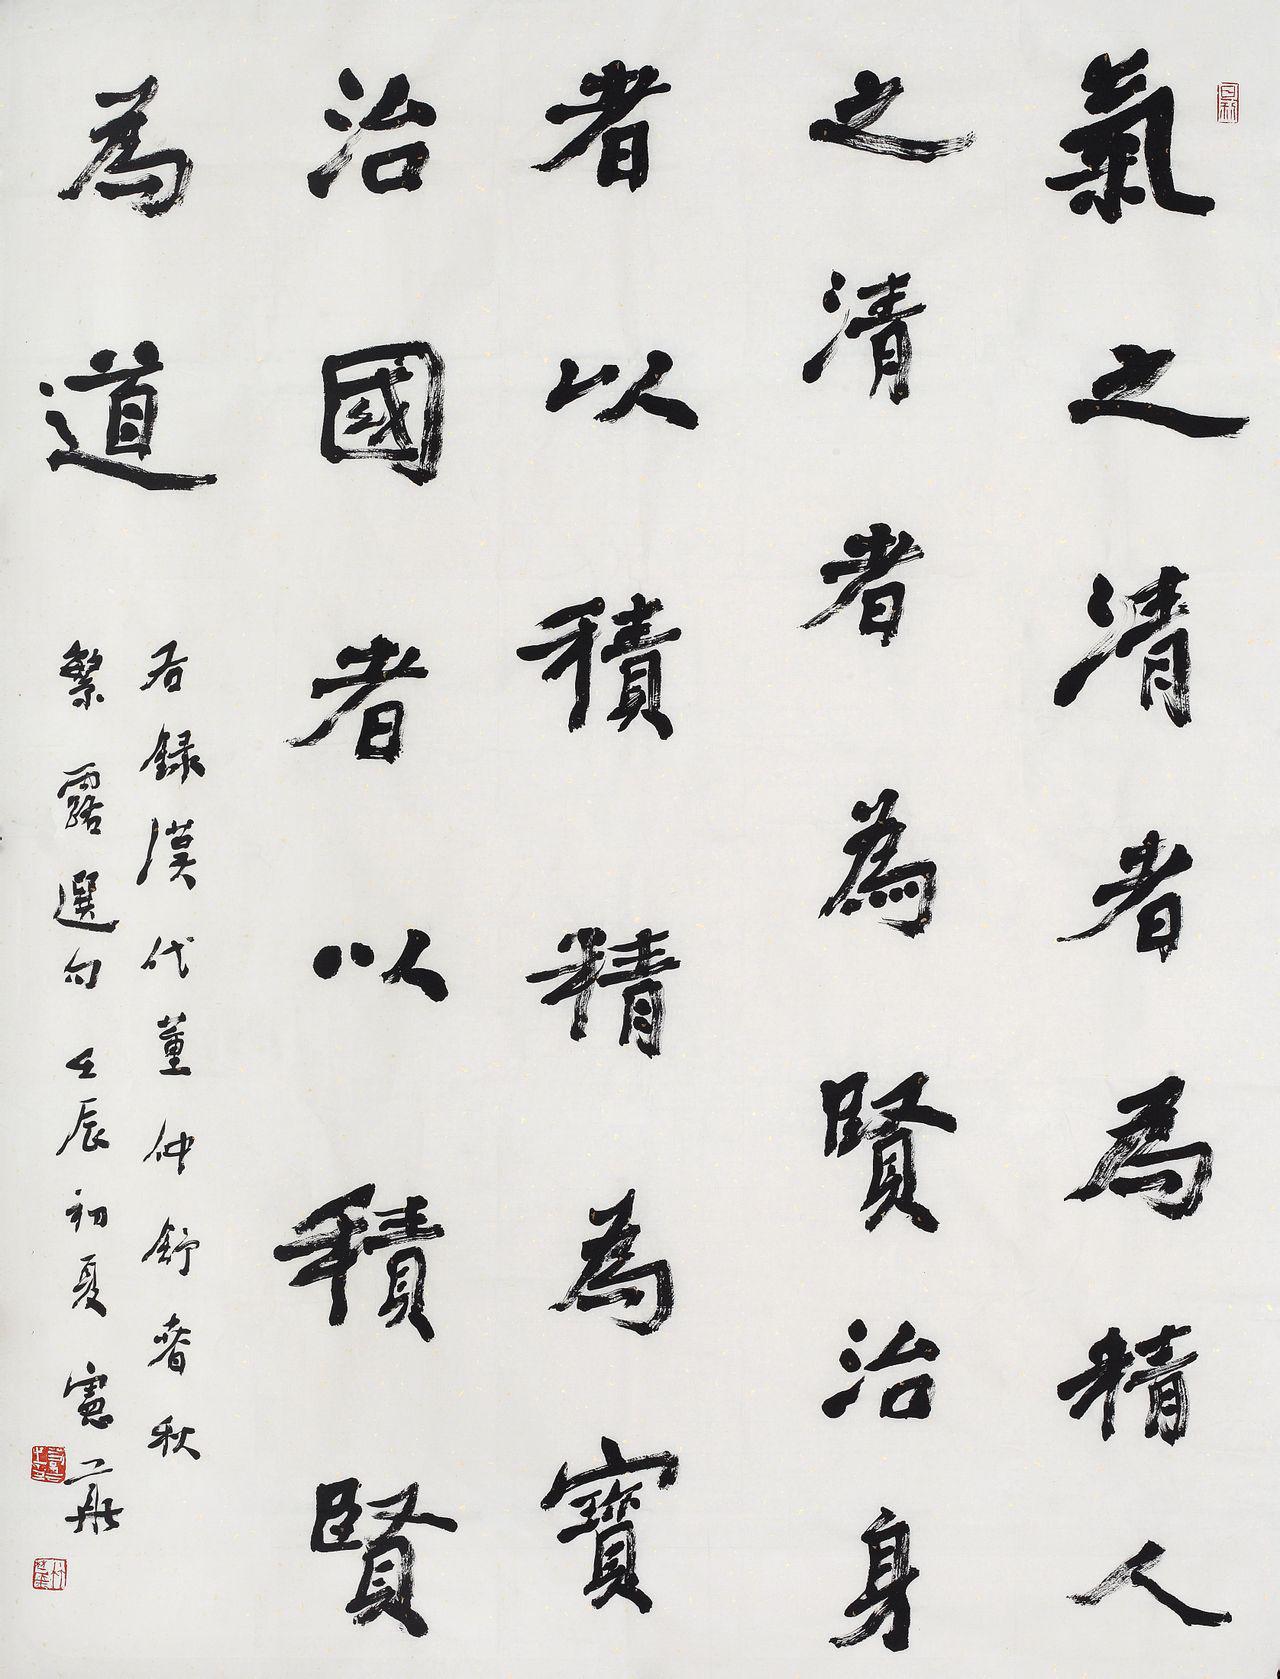 氣之清者為精人
之清者為賢治身
者以積精為寶
治國者以積賢
為道
右錄漢代董仲舒春秋
繁露選句 壬辰初夏 憲